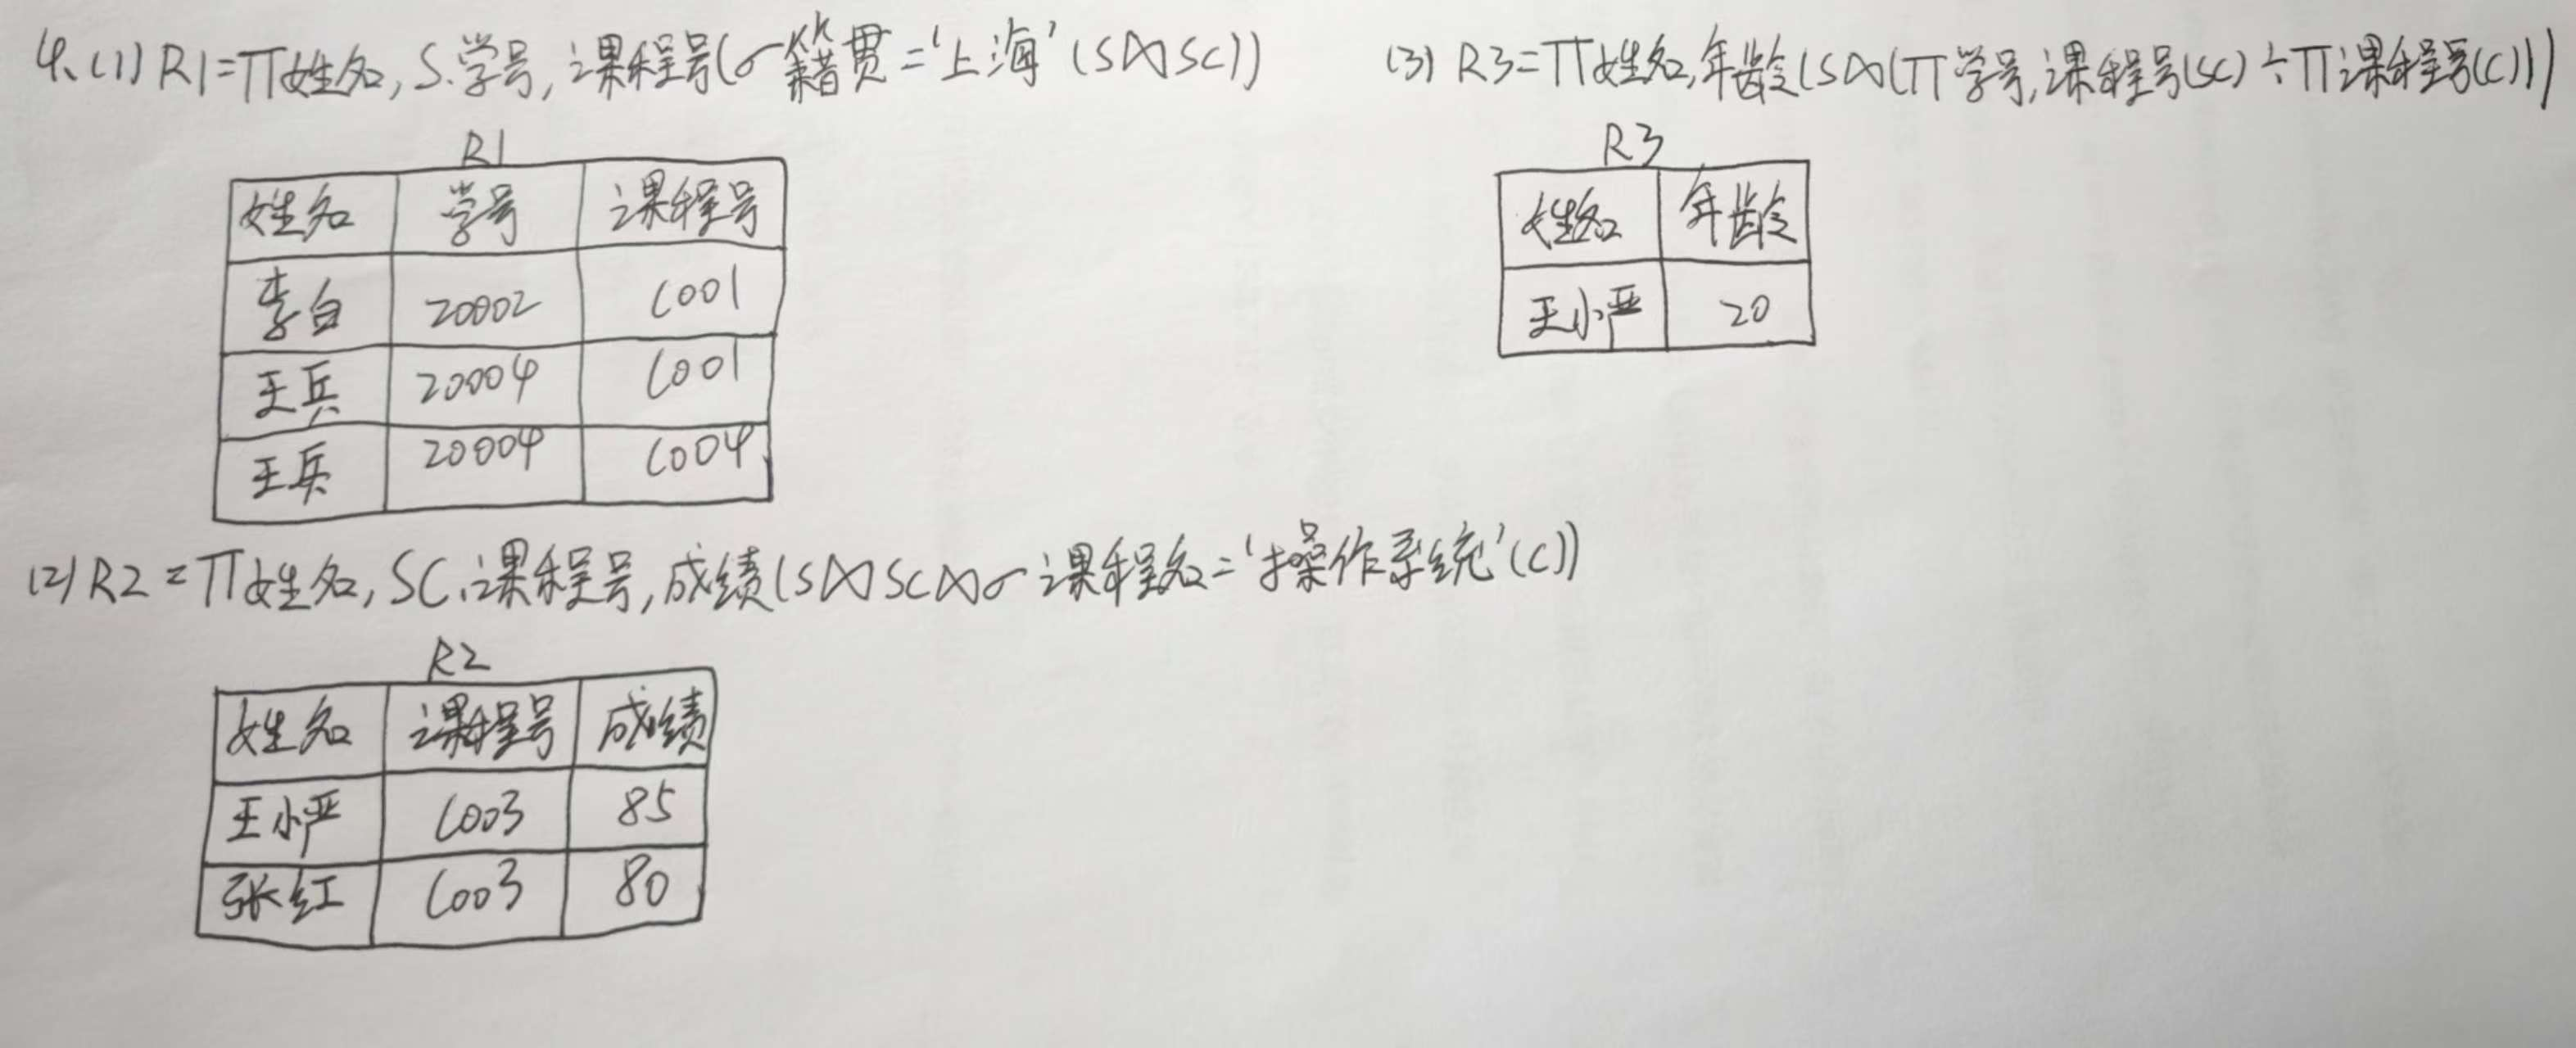 4、(1) R1=π姓名,S.学号,课程号(σ籍贯='上海'(S⋈SC))
R1
姓名 学号 课程号
李白 20002 C001
王兵 20004 C001
王兵 20004 C004
(2) R2=π姓名,SC.课程号,成绩(S⋈SC⋈σ课程名='操作系统'(C))
R2
姓名 课程号 成绩
王小严 C003 85
张红 C003 80
(3) R3=π姓名,年龄(S⋈(π学号,课程号(SC)÷π课程号(C)))
R3
姓名 年龄
王小严 20